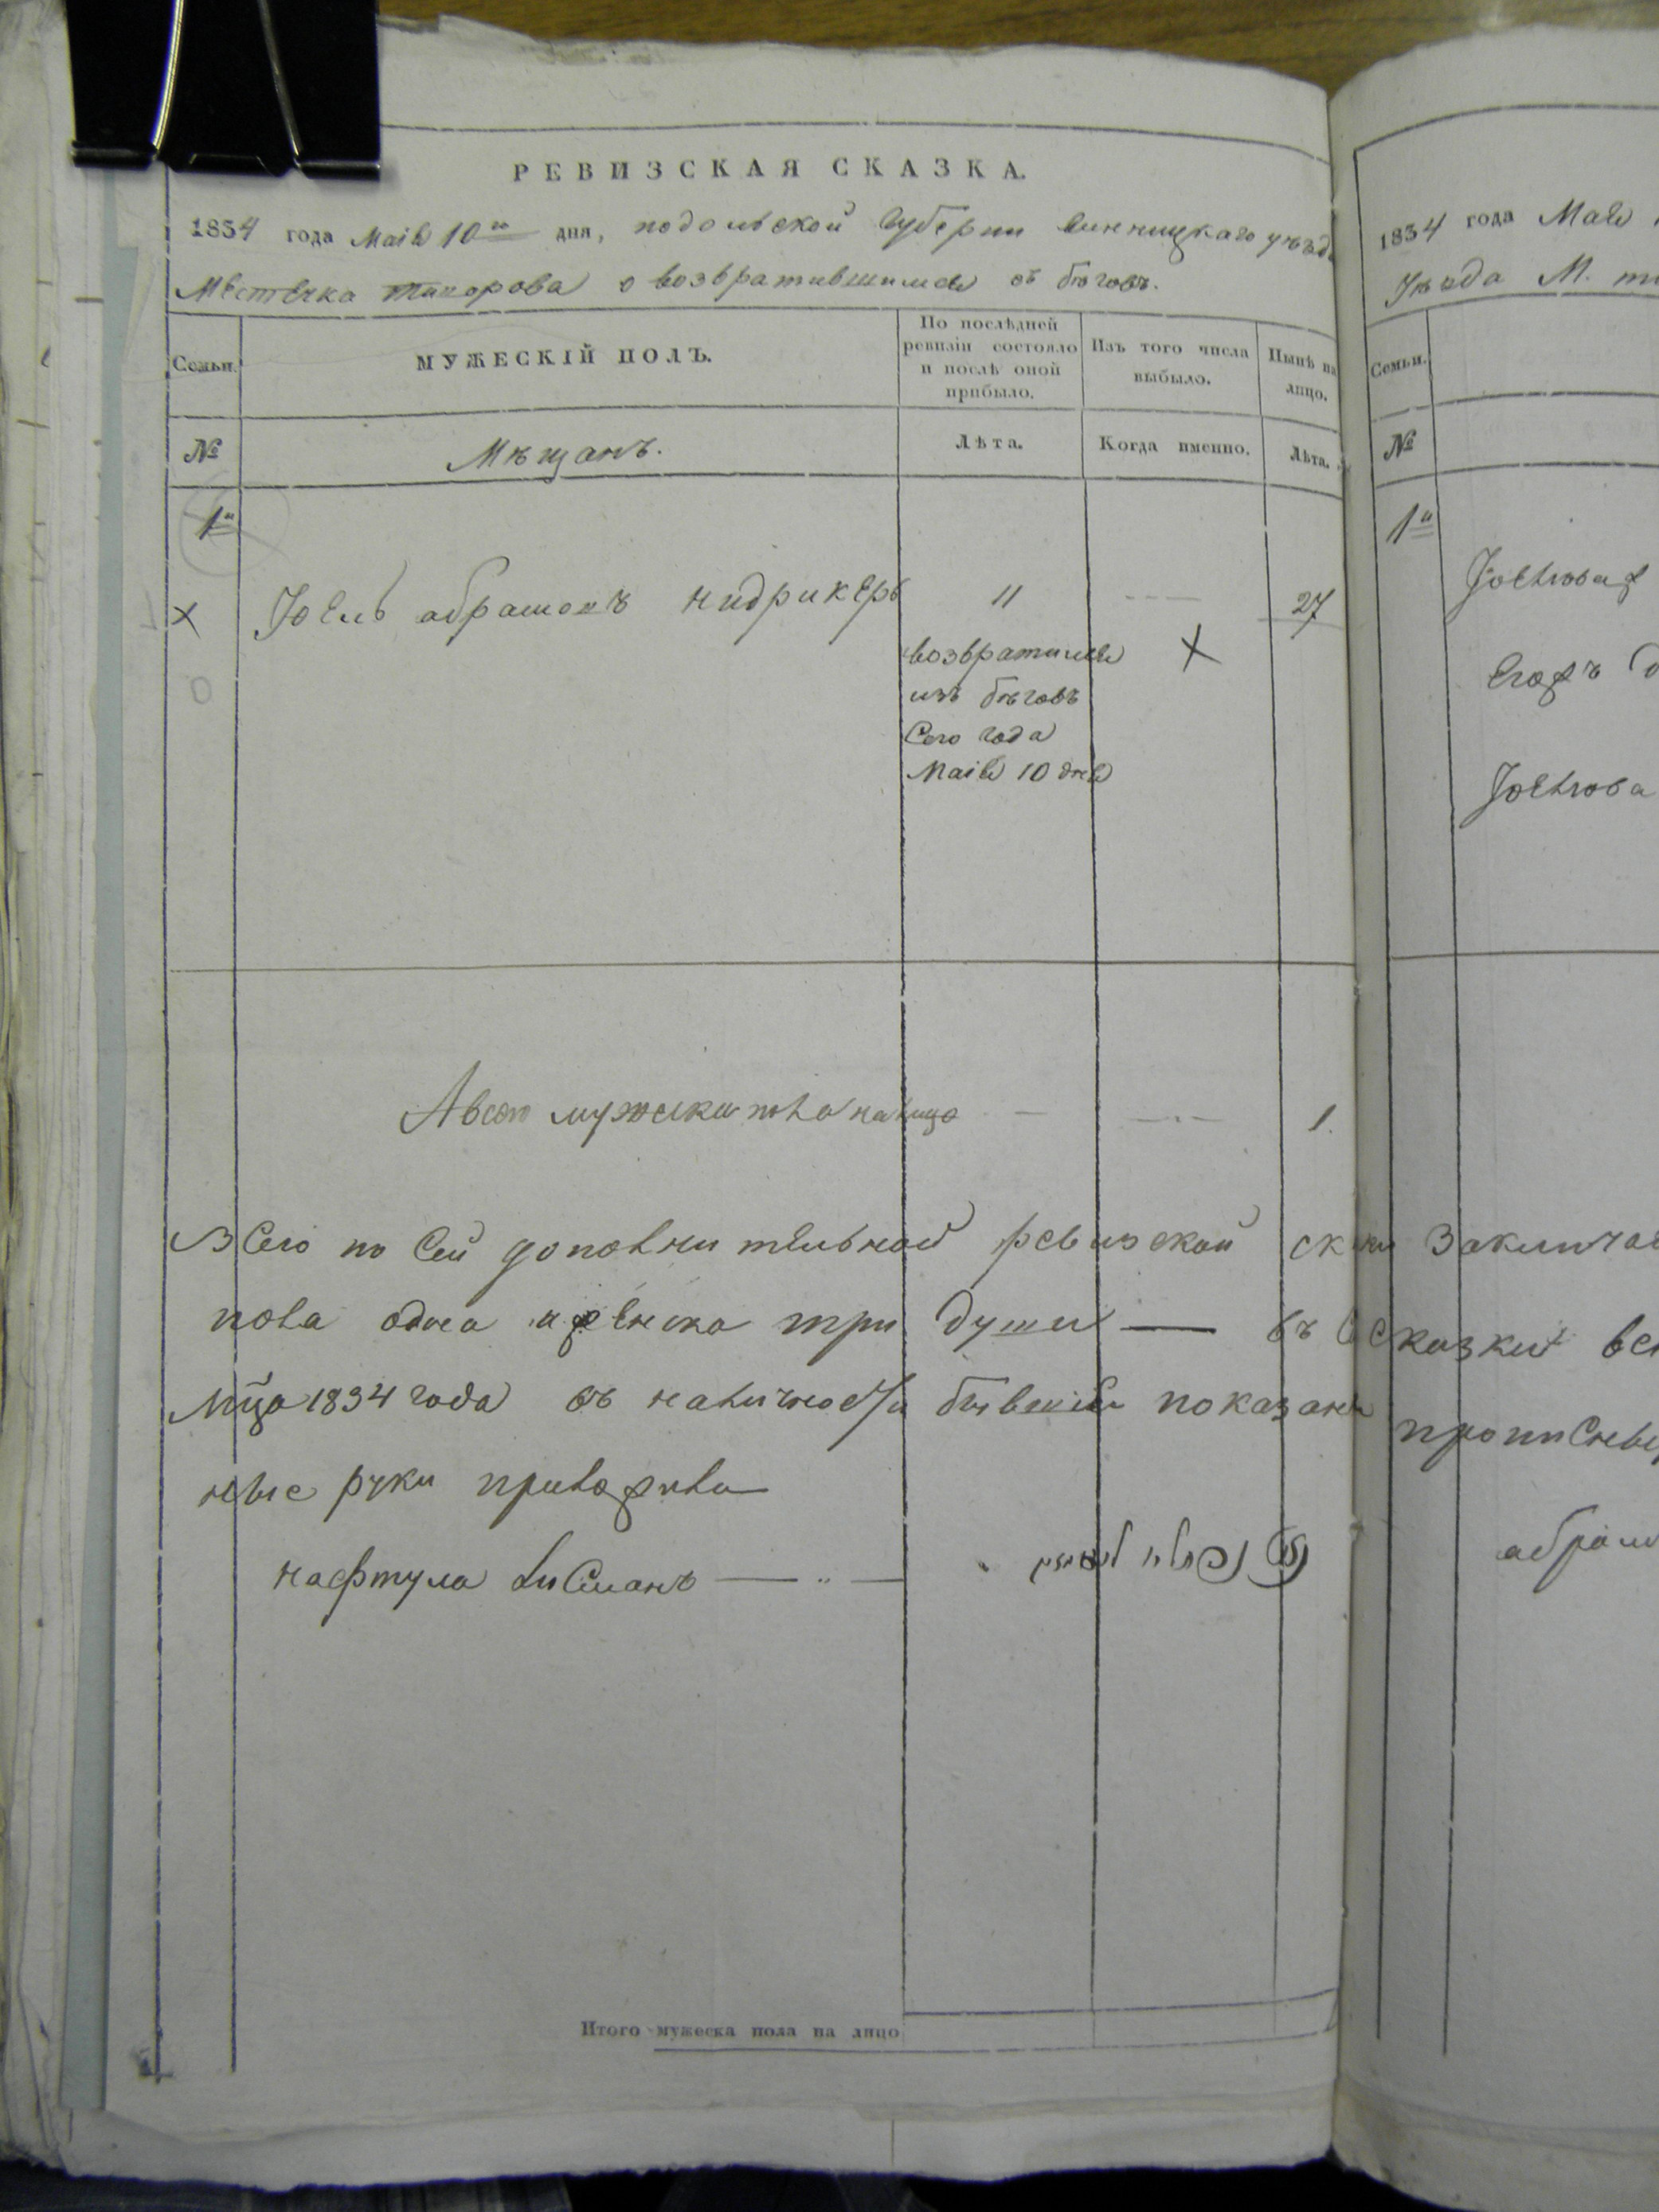 РЕВИЗСКАЯ СКАЗКА.
1834 года Маія 10го дня, подольской Губерніи Винницкаго уѣзда
Местечка о возвратившимся съ бѣговъ.
Семьи.
МУЖЕСКІЙ ПОЛЪ.
По послѣдней ревизіи состояло и послѣ оной прибыло.
Изъ того числа выбыло.
Нынѣ на лицо.
№
Мѣщанъ.
Лѣта.
Когда именно.
Лѣта.
1й
Іоель абрамовъ нидрикеръ
11
27
возвратился
изъ бѣговъ
Сего года
Маія 10 дня
А всего мужеска пола налицо
1.
Всего по Сей дополнительной ревизской
пола одна а женска три души — въ
Мца 1834 года въ наличности бывшія показаны
ные руки приложили
нафтула Лисманъ
Итого мужеска пола на лицо
1834 года Маія
Уѣзда М.
Семьи.
№
1й
Іоелювая
Егожъ
Іоелюва
Сказки
абрам